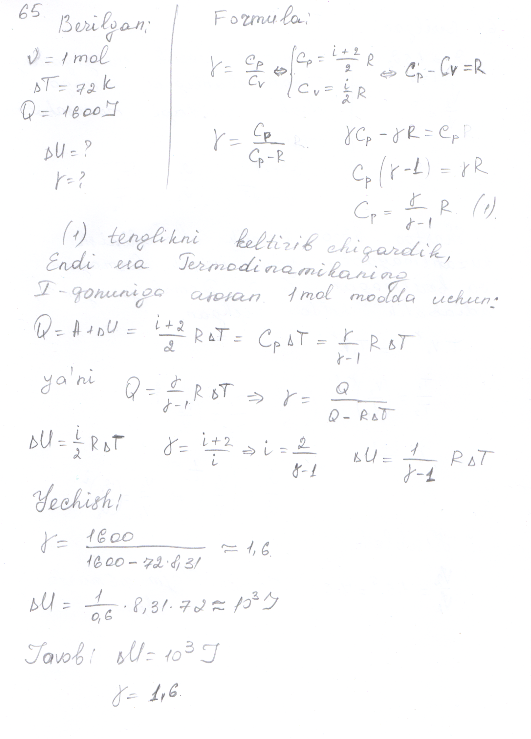 65 Berilgan:
ν = 1 mol
ΔT = 72 K
Q = 1600 J
ΔU = ?
γ = ?
Formula:
γ = Cp/Cv ⇔ { Cp = (i+2)/2 R ; Cv = i/2 R ⇔ Cp - Cv = R
γ = Cp/(Cp-R)    γCp - γR = Cp
Cp(γ-1) = γR
Cp = γ/(γ-1) R (1).
(1) tenglikni keltirib chiqardik,
Endi esa Termodinamikaning
I-qonuniga asosan 1 mol modda uchun:
Q = A+ΔU = (i+2)/2 RΔT = CpΔT = γ/(γ-1) RΔT
ya'ni Q = γ/(γ-1) RΔT ⇒ γ = Q/(Q-RΔT)
ΔU = i/2 RΔT    γ = (i+2)/i ⇒ i = 2/(γ-1)    ΔU = 1/(γ-1) RΔT
Yechish:
γ = 1600/(1600-72·8,31) ≈ 1,6.
ΔU = 1/0,6 · 8,31 · 72 ≈ 10³ J
Javob: ΔU = 10³ J
γ = 1,6.